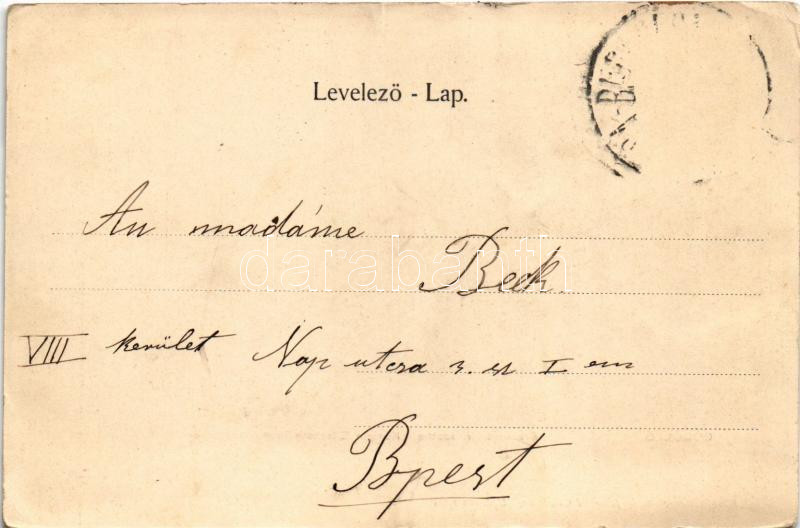 Levelezö - Lap.
An madáme
Beck
VIII kerület Nap utcza 3. sz I em
Bpest
darabanth